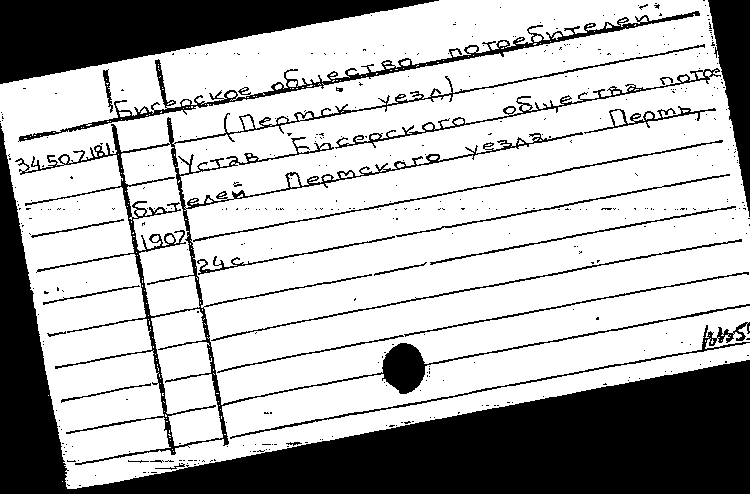 Бисерское общество потребителей.
(Пермск уезд).
34.507.181
Устав Бисерского общества потре
бителей Пермского уезда. Пермь,
1907
24 с.